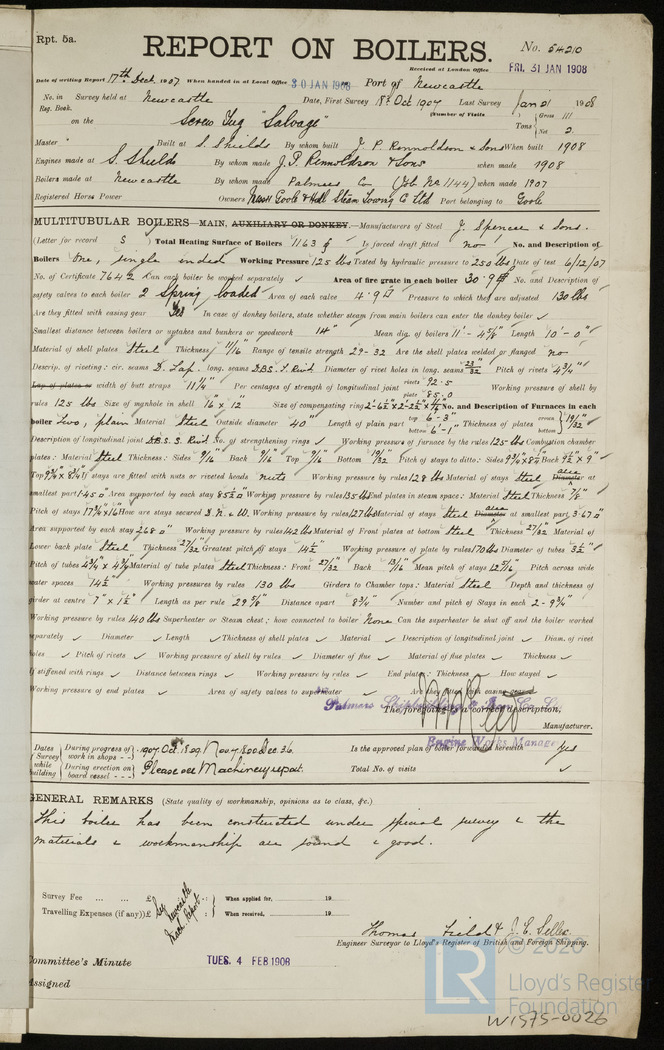 Rpt. 5a.
REPORT ON BOILERS.
No. 54210
Received at London Office FRI. 31 JAN 1908
Date of writing Report 17th Dec. 1907 When handed in at Local Office 30 JAN 1908 Port of Newcastle
No. in Survey held at Newcastle Date, First Survey 18 Oct 1907 Last Survey Jan 21 1908
Reg. Book. (Number of Visits
on the Screw Tug "Salvage" Tons { Gross 111 Net 2.
Master Built at S. Shields By whom built J. P. Rennoldson & Sons When built 1908
Engines made at S. Shields By whom made J. P. Rennoldson & Sons when made 1908
Boilers made at Newcastle By whom made Palmers Co (Job No 1144) when made 1907
Registered Horse Power Owners Messrs Goole & Hull Steam Towing Co Ltd Port belonging to Goole
MULTITUBULAR BOILERS – MAIN, AUXILIARY OR DONKEY.–Manufacturers of Steel J. Spencer & Sons.
(Letter for record S ) Total Heating Surface of Boilers 1163 Is forced draft fitted no No. and Description of
Boilers One, single ended Working Pressure 125 lbs Tested by hydraulic pressure to 250 lbs Date of test 6/12/07
No. of Certificate 7642 Can each boiler be worked separately ✓ Area of fire grate in each boiler 30.9 No. and Description of
safety valves to each boiler 2 Spring loaded Area of each valve 4.9 Pressure to which they are adjusted 130 lbs
Are they fitted with easing gear Yes In case of donkey boilers, state whether steam from main boilers can enter the donkey boiler ✓
Smallest distance between boilers or uptakes and bunkers or woodwork 14" Mean dia. of boilers 11'-4 5/8" Length 10'-0"
Material of shell plates Steel Thickness 11/16" Range of tensile strength 29-32 Are the shell plates welded or flanged no
Descrip. of riveting: cir. seams D. Lap. long. seams D.B.S. T. Rivd. Diameter of rivet holes in long. seams 23/32 Pitch of rivets 4 3/4"
Lap of plates or width of butt straps 11 1/4" Per centages of strength of longitudinal joint rivets 92.5 plate 85.0 Working pressure of shell by
rules 125 lbs Size of manhole in shell 16" x 12" Size of compensating ring No. and Description of Furnaces in each
boiler Two, plain Material Steel Outside diameter 40" Length of plain part top 6'-3" bottom 6'-1" Thickness of plates crown bottom } 19/32"
Description of longitudinal joint D.B.S. S. Rivd No. of strengthening rings ✓ Working pressure of furnace by the rules 125 lbs Combustion chamber
plates: Material Steel Thickness: Sides 9/16" Back 9/16" Top 9/16" Bottom 19/32 Pitch of stays to ditto: Sides 9 3/4" x 8 1/4" Back 9 1/2" x 9"
Top 9 3/4" x 8 3/4" If stays are fitted with nuts or riveted heads nuts Working pressure by rules 128 lbs Material of stays Steel Diameter area at
smallest part 1.45" Area supported by each stay 85.5" Working pressure by rules 135 lbs End plates in steam space: Material Steel Thickness 7/8"
Pitch of stays 17 3/4" x 16" How are stays secured D.N. & W. Working pressure by rules 127 lbs Material of stays Steel Diameter area at smallest part 3.67"
Area supported by each stay 268" Working pressure by rules 142 lbs Material of Front plates at bottom Steel Thickness 27/32" Material of
Lower back plate Steel Thickness 27/32" Greatest pitch of stays 14 1/2" Working pressure of plate by rules 170 lbs Diameter of tubes 3 1/2"
Pitch of tubes 4 3/4" x 4 3/4" Material of tube plates Steel Thickness: Front 27/32" Back 13/16" Mean pitch of stays 12 7/16" Pitch across wide
water spaces 14 1/2" Working pressures by rules 130 lbs Girders to Chamber tops: Material Steel Depth and thickness of
girder at centre 7" x 1 1/2" Length as per rule 29 5/8" Distance apart 8 3/4" Number and pitch of Stays in each 2 - 9 3/4"
Working pressure by rules 140 lbs Superheater or Steam chest; how connected to boiler None Can the superheater be shut off and the boiler worked
separately ✓ Diameter ✓ Length ✓ Thickness of shell plates ✓ Material ✓ Description of longitudinal joint ✓ Diam. of rivet
holes ✓ Pitch of rivets ✓ Working pressure of shell by rules ✓ Diameter of flue ✓ Material of flue plates ✓ Thickness ✓
If stiffened with rings ✓ Distance between rings ✓ Working pressure by rules ✓ End plates: Thickness ✓ How stayed ✓
Working pressure of end plates ✓ Area of safety valves to superheater ✓ Are they fitted with easing gear
Palmers Shipbuilding & Iron Co. Ld.
The foregoing is a correct description,
Manufacturer.
Engine Works Manager
Dates of Survey while building { During progress of work in shops - - } 1907. Oct. 18. 29. Nov. 7. 20. Dec. 3. 6. Is the approved plan of boiler forwarded herewith Yes
{ During erection on board vessel - - - } Please see Machinery report. Total No. of visits ✓
GENERAL REMARKS (State quality of workmanship, opinions as to class, &c.)
This boiler has been constructed under special survey & the
materials & workmanship are sound & good.
Survey Fee ... ... £ : : When applied for, 19
Travelling Expenses (if any) £ : : When received, 19
See Newcastle Mach. Report.
Thomas Field & J. C. Sellex
Engineer Surveyor to Lloyd's Register of British and Foreign Shipping.
Committee's Minute TUES. 4 FEB 1908
Assigned
LR © 2020
Lloyd's Register
Foundation
W1575-0026